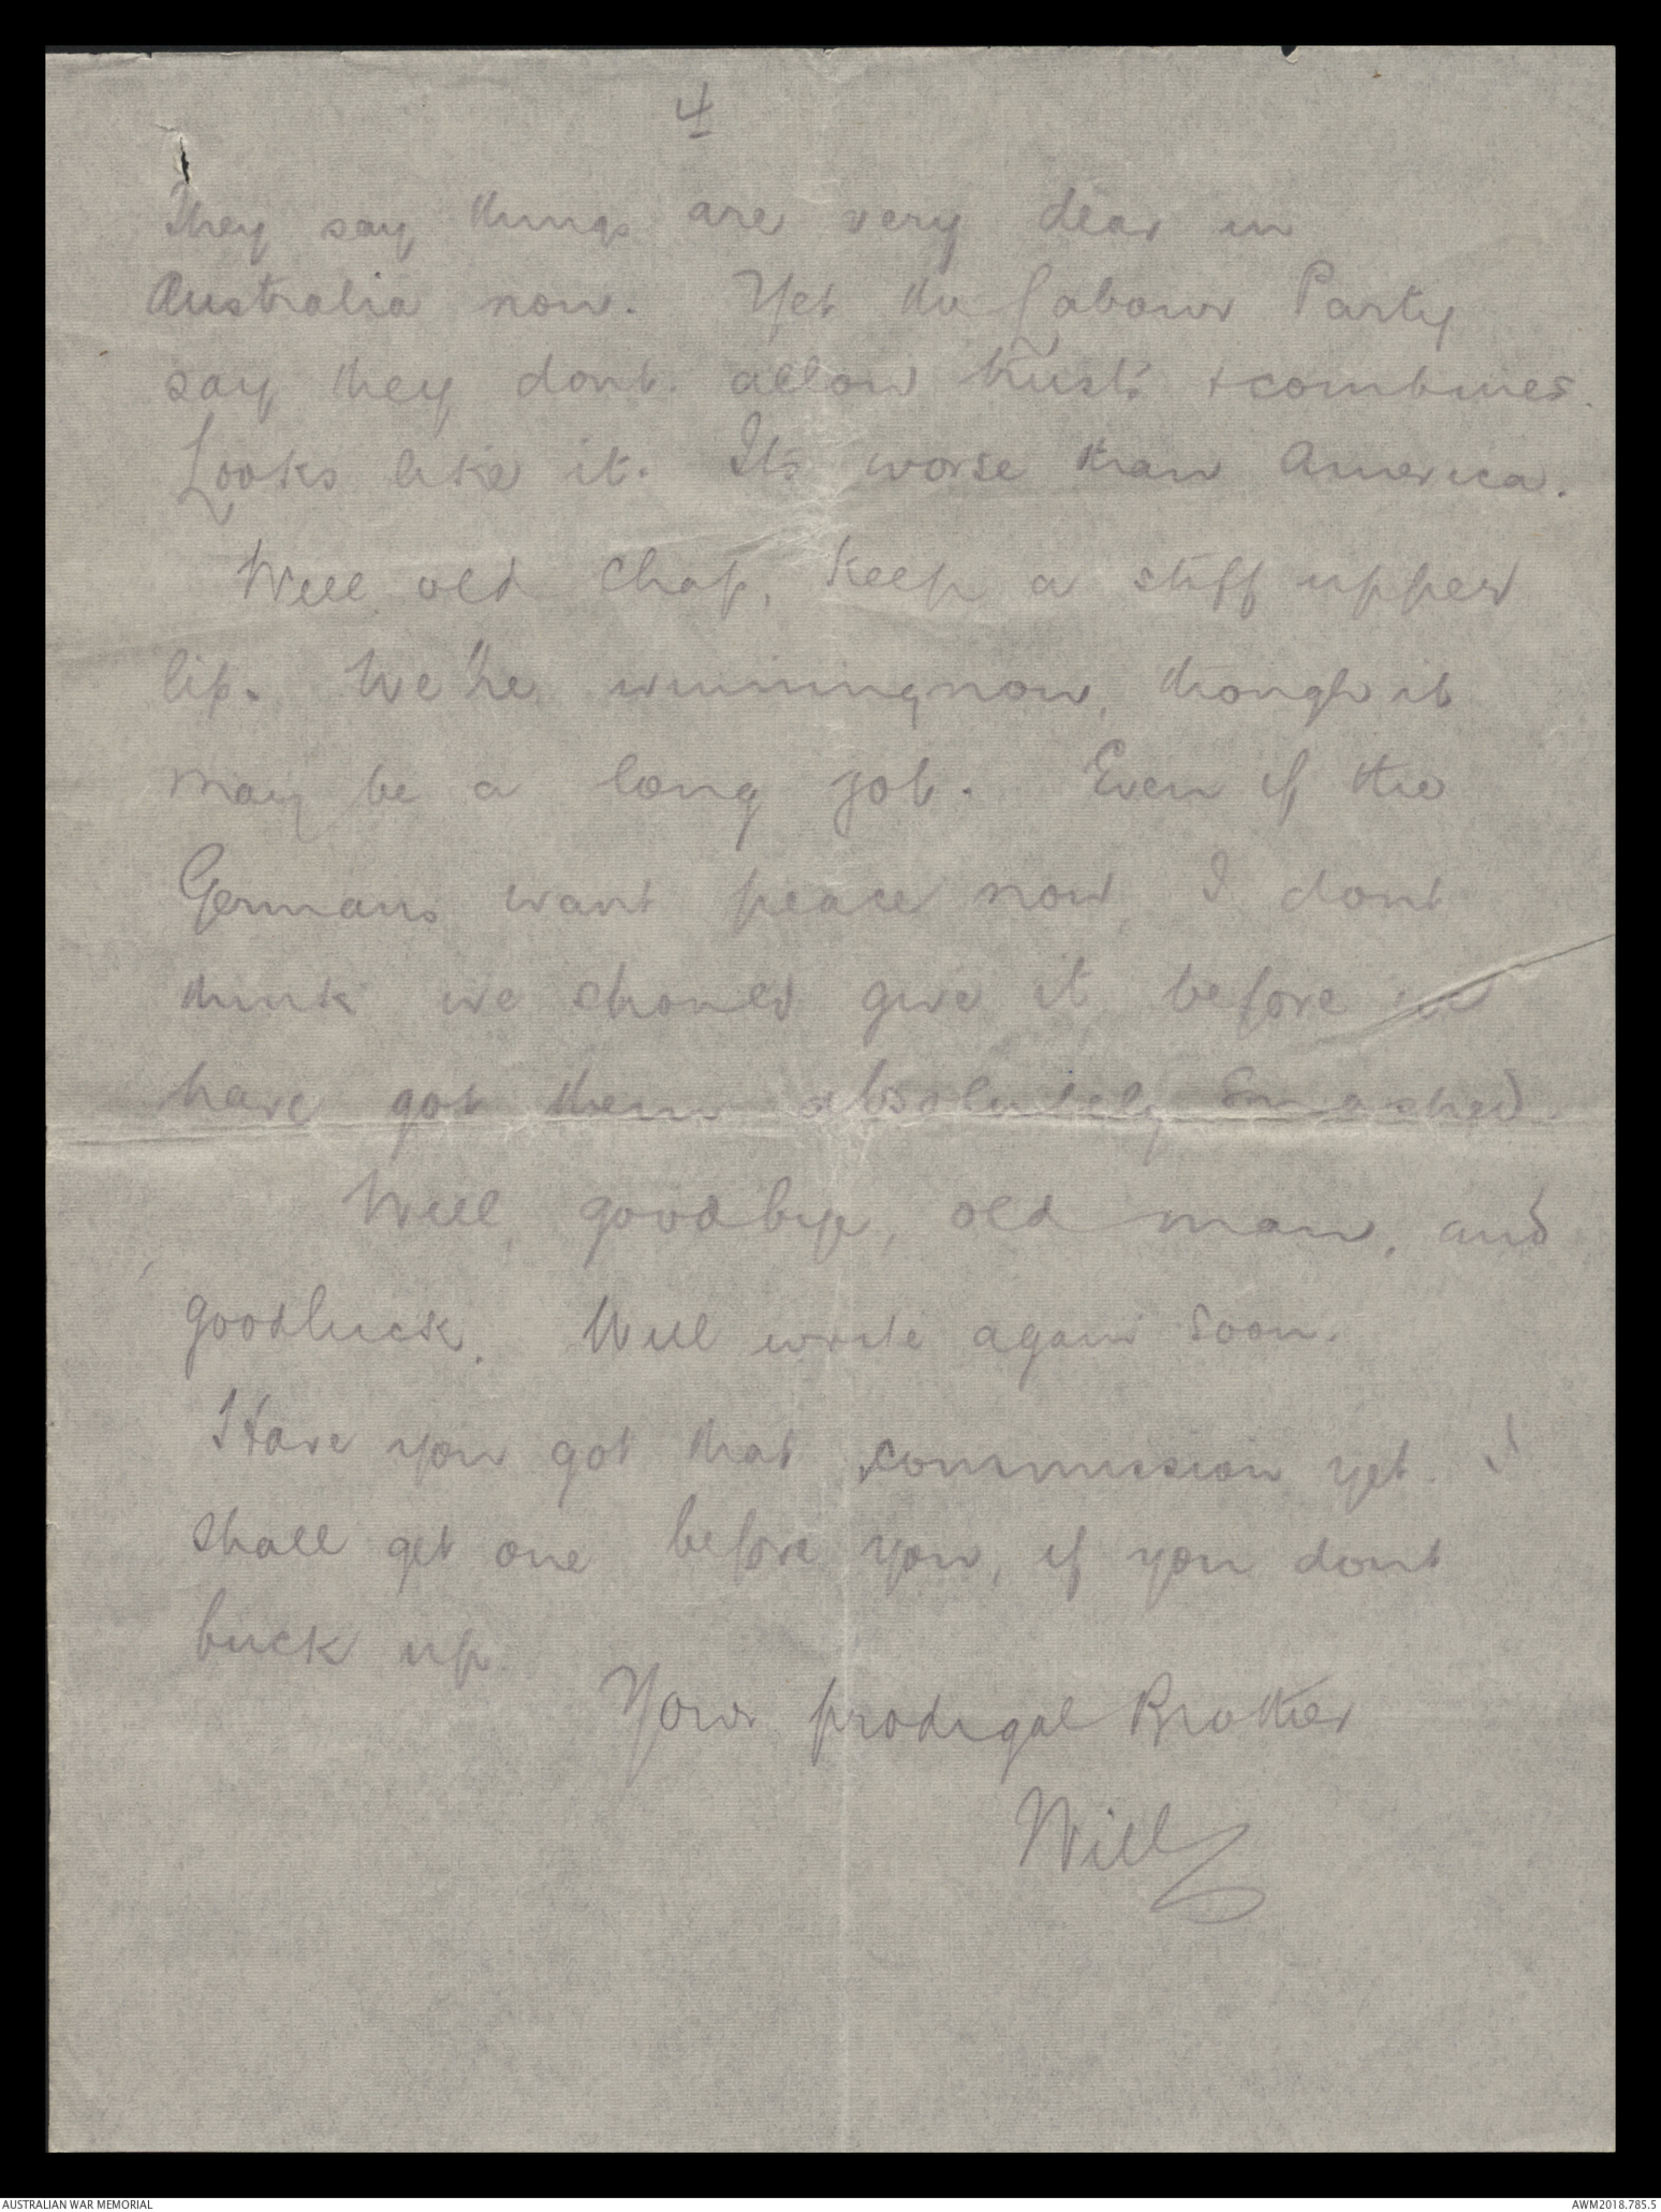 4
They say things are very dear in
Australia now. Yet the Labour Party
say they dont allow trusts + combines.
Looks like it. Its worse than America.
Well old chap, keep a stiff upper
lip. We're winning now, though it
may be a long job. Even if the
Germans want peace now I dont
think we should give it before we
have got them absolutely smashed.
Well, goodbye, old man, and
goodluck. Will write again soon.
Have you got that commission yet. I
shall get one before you, if you dont
buck up.
Your prodigal Brother
Will
AUSTRALIAN WAR MEMORIAL
AWM2018.785.5